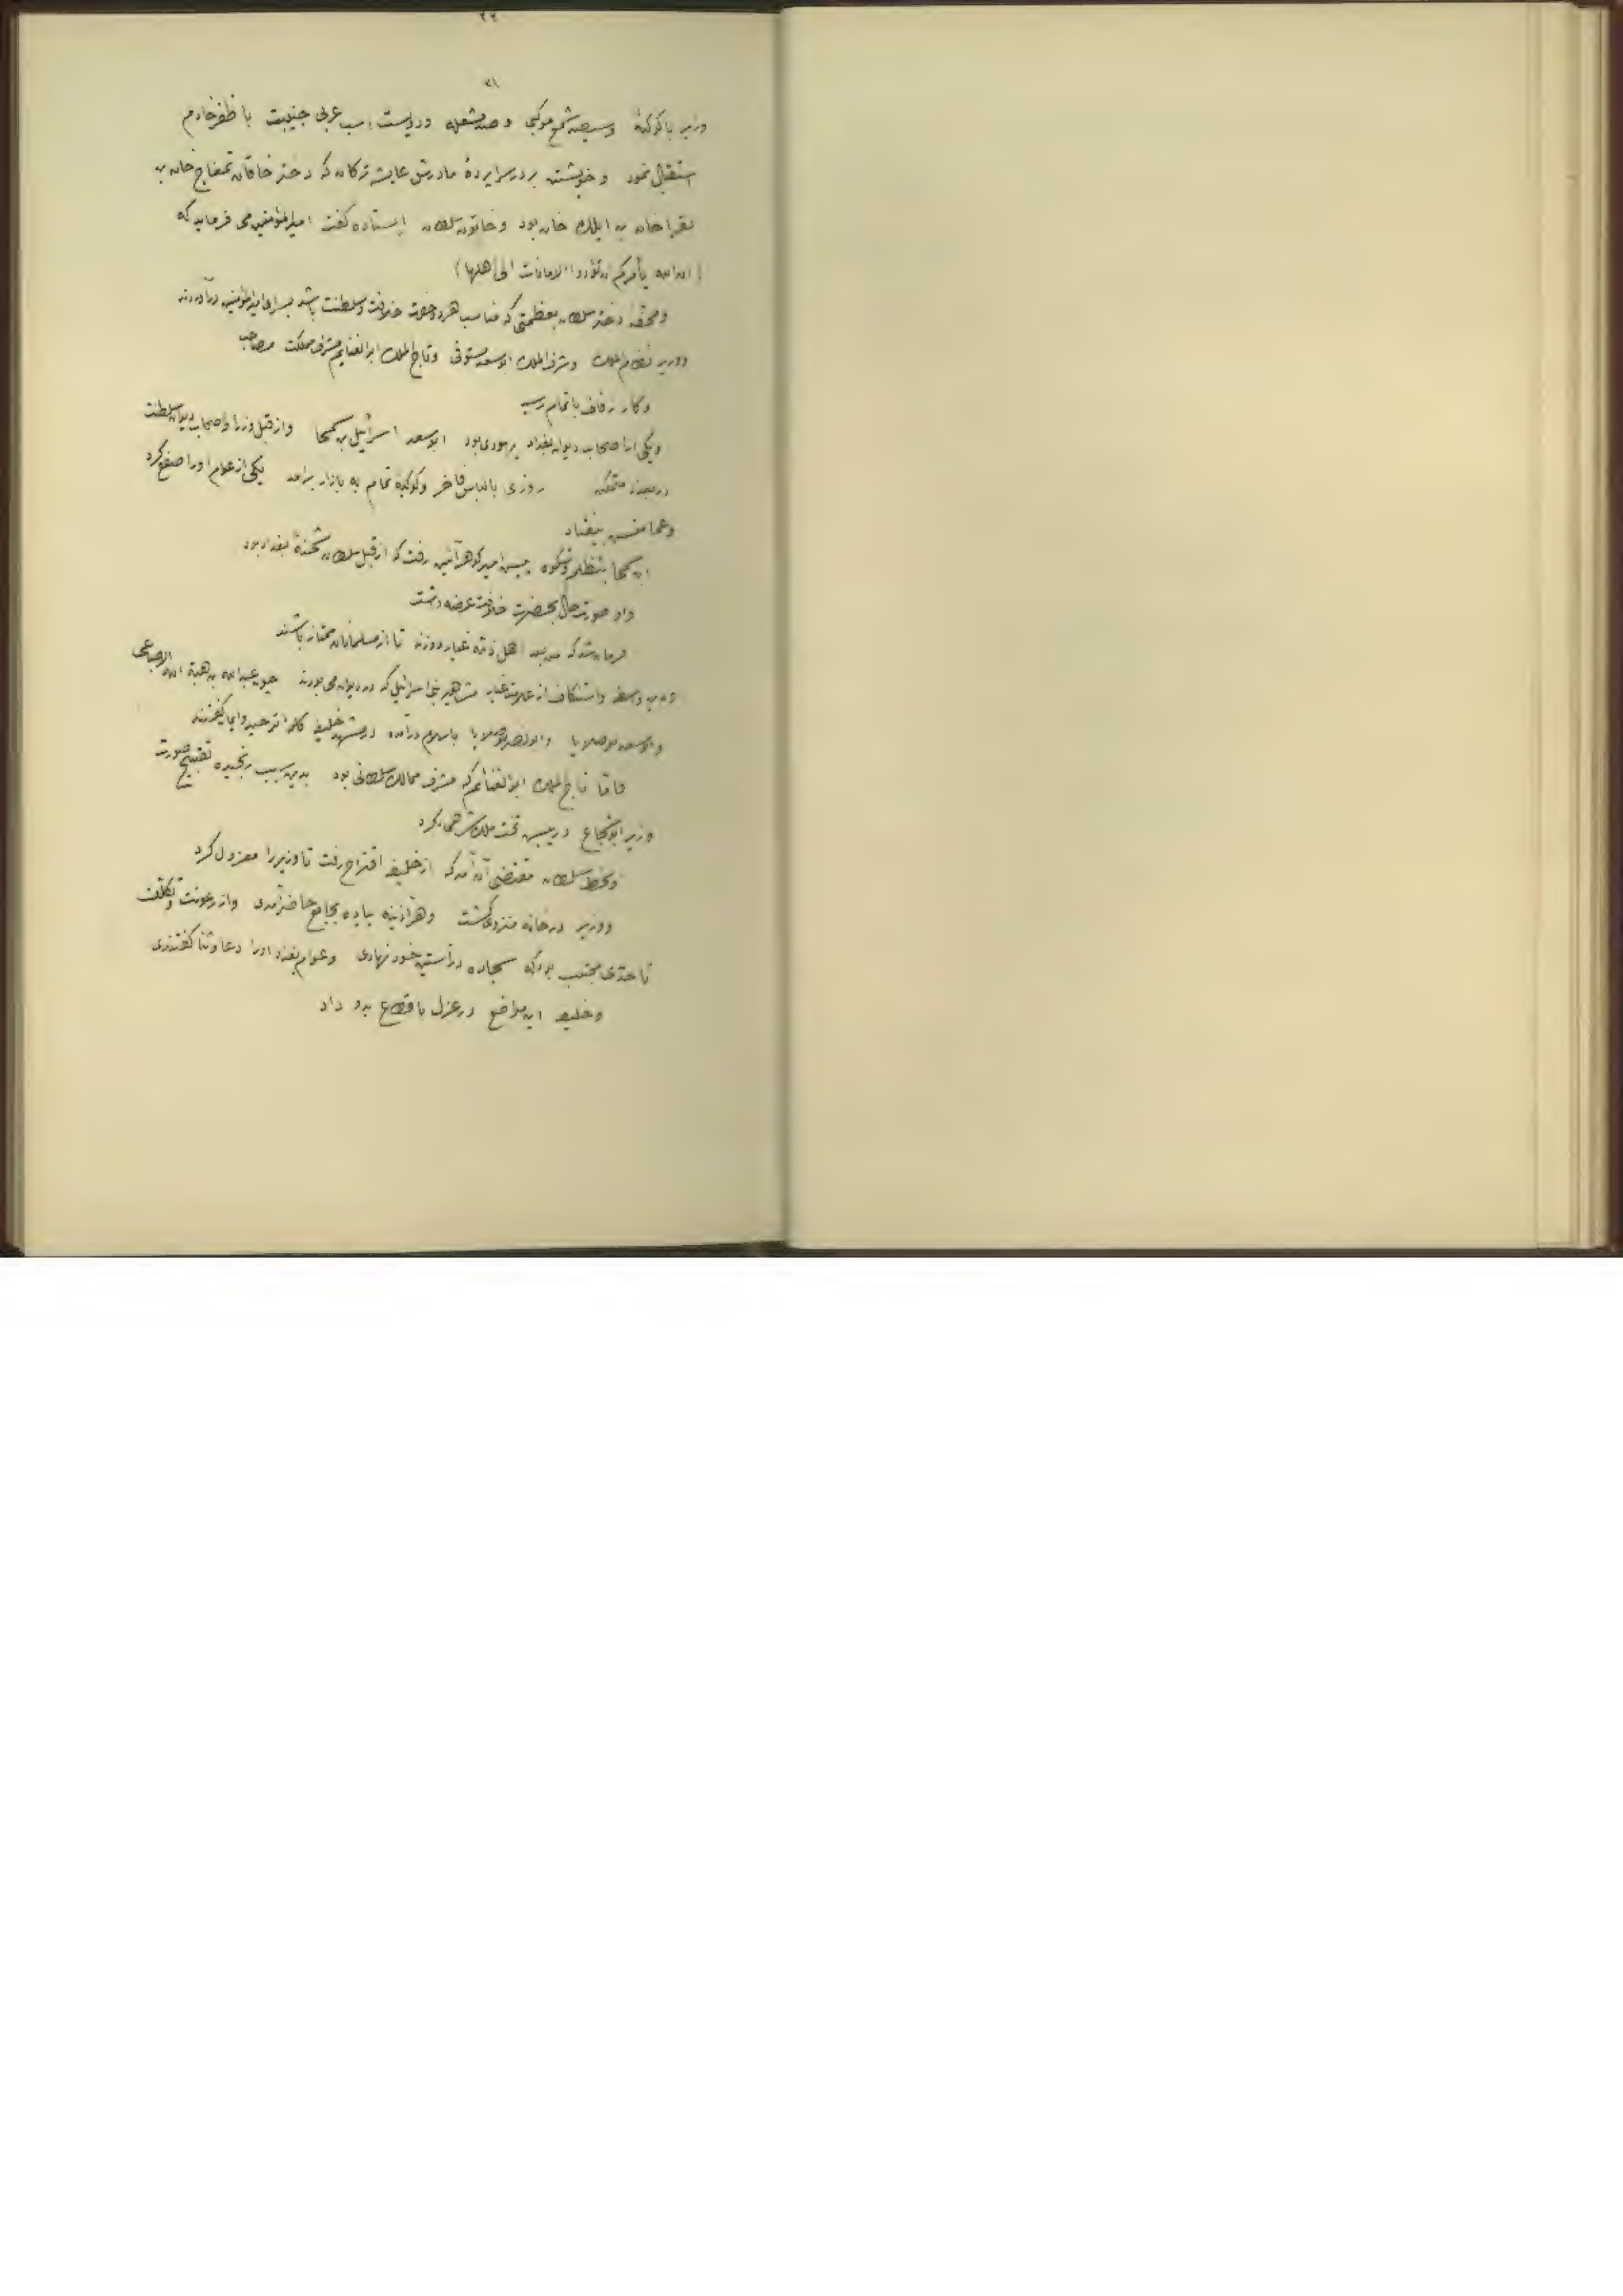 ٢٢
٣١
وزیر با کوکبهٔ وسیصد شمع موکبی و صد مشعله و دویست اسب عربی جنیبت با ظفر خادم
استقبال نمود و خویشتن بر در سراپردهٔ مادرش عایشه ترکان که دختر خاقان تمغاج خان بن
بقراخان بن ایلک خان بود و خاتون سلطان ایستاده گفت امیرالمؤمنین می فرماید که
(ان الله یأمرکم ان تؤدوا الامانات الی اهلها)
ومحفه دختر سلطان بعظمتی که مناسب هر دو حضرت خلافت و سلطنت باشد بسرای امیرالمؤمنین درآوردند
ووزیر نظام الملک وشرف الملک ابوسعد مستوفی وتاج الملک ابوالغنایم مشرف مملکت مصاحب
وکار زفاف باتمام رسید
ویکی از اصحاب دیوان بغداد یهودی بود ابوسعد اسرائیل بن کمحا واز قبل وزرا واصحاب دیوان سلطنت
در بغداد متمکن روزی بالباس فاخر وکوکبهٔ تمام به بازار برآمد یکی از عوام اورا صفع کرد
وعمامش بیفتاد
ابن کمحا بتظلم وشکوه پیش امیر گوهرآئین رفت که از قبل سلطان شحنهٔ بغداد بود
واو صورت حال بحضرت خلافت عرضه داشت
فرمان شد که من بعد اهل ذمه غیار دوزند تا از مسلمانان ممتاز باشند
واسطه واستنکاف از علامت غیار مشاهیر بنی اسرائیل که در دیوان می بودند چو عبدالله بن هبة الله
وابوسعد بوصلایا وابونصر بوصلایا باسلام درآمده در مشهد خلیفه کلمهٔ توحید وایمان گفتند
فاما تاج الملک ابوالغنائم که مشرف ممالک سلطانی بود بدین سبب رنجیده تقبیح صورت
وزیر ابوشجاع در پیش تخت ملکشاه همی کرد
وسخط سلطان مقتضی آن آمد که از خلیفه اقتراح رفت تا وزیر را معزول کرد
ووزیر در خانه منزوی گشت وهر آدینه پیاده بجامع حاضر آمدی واز رعونت وتکلف
تا حدی مجتنب بود که سجاده در آستین خود نهادی وعوام بغداد اورا دعا وثنا گفتندی
وخلیفه این مواضع در عزل باقطاع بدو داد